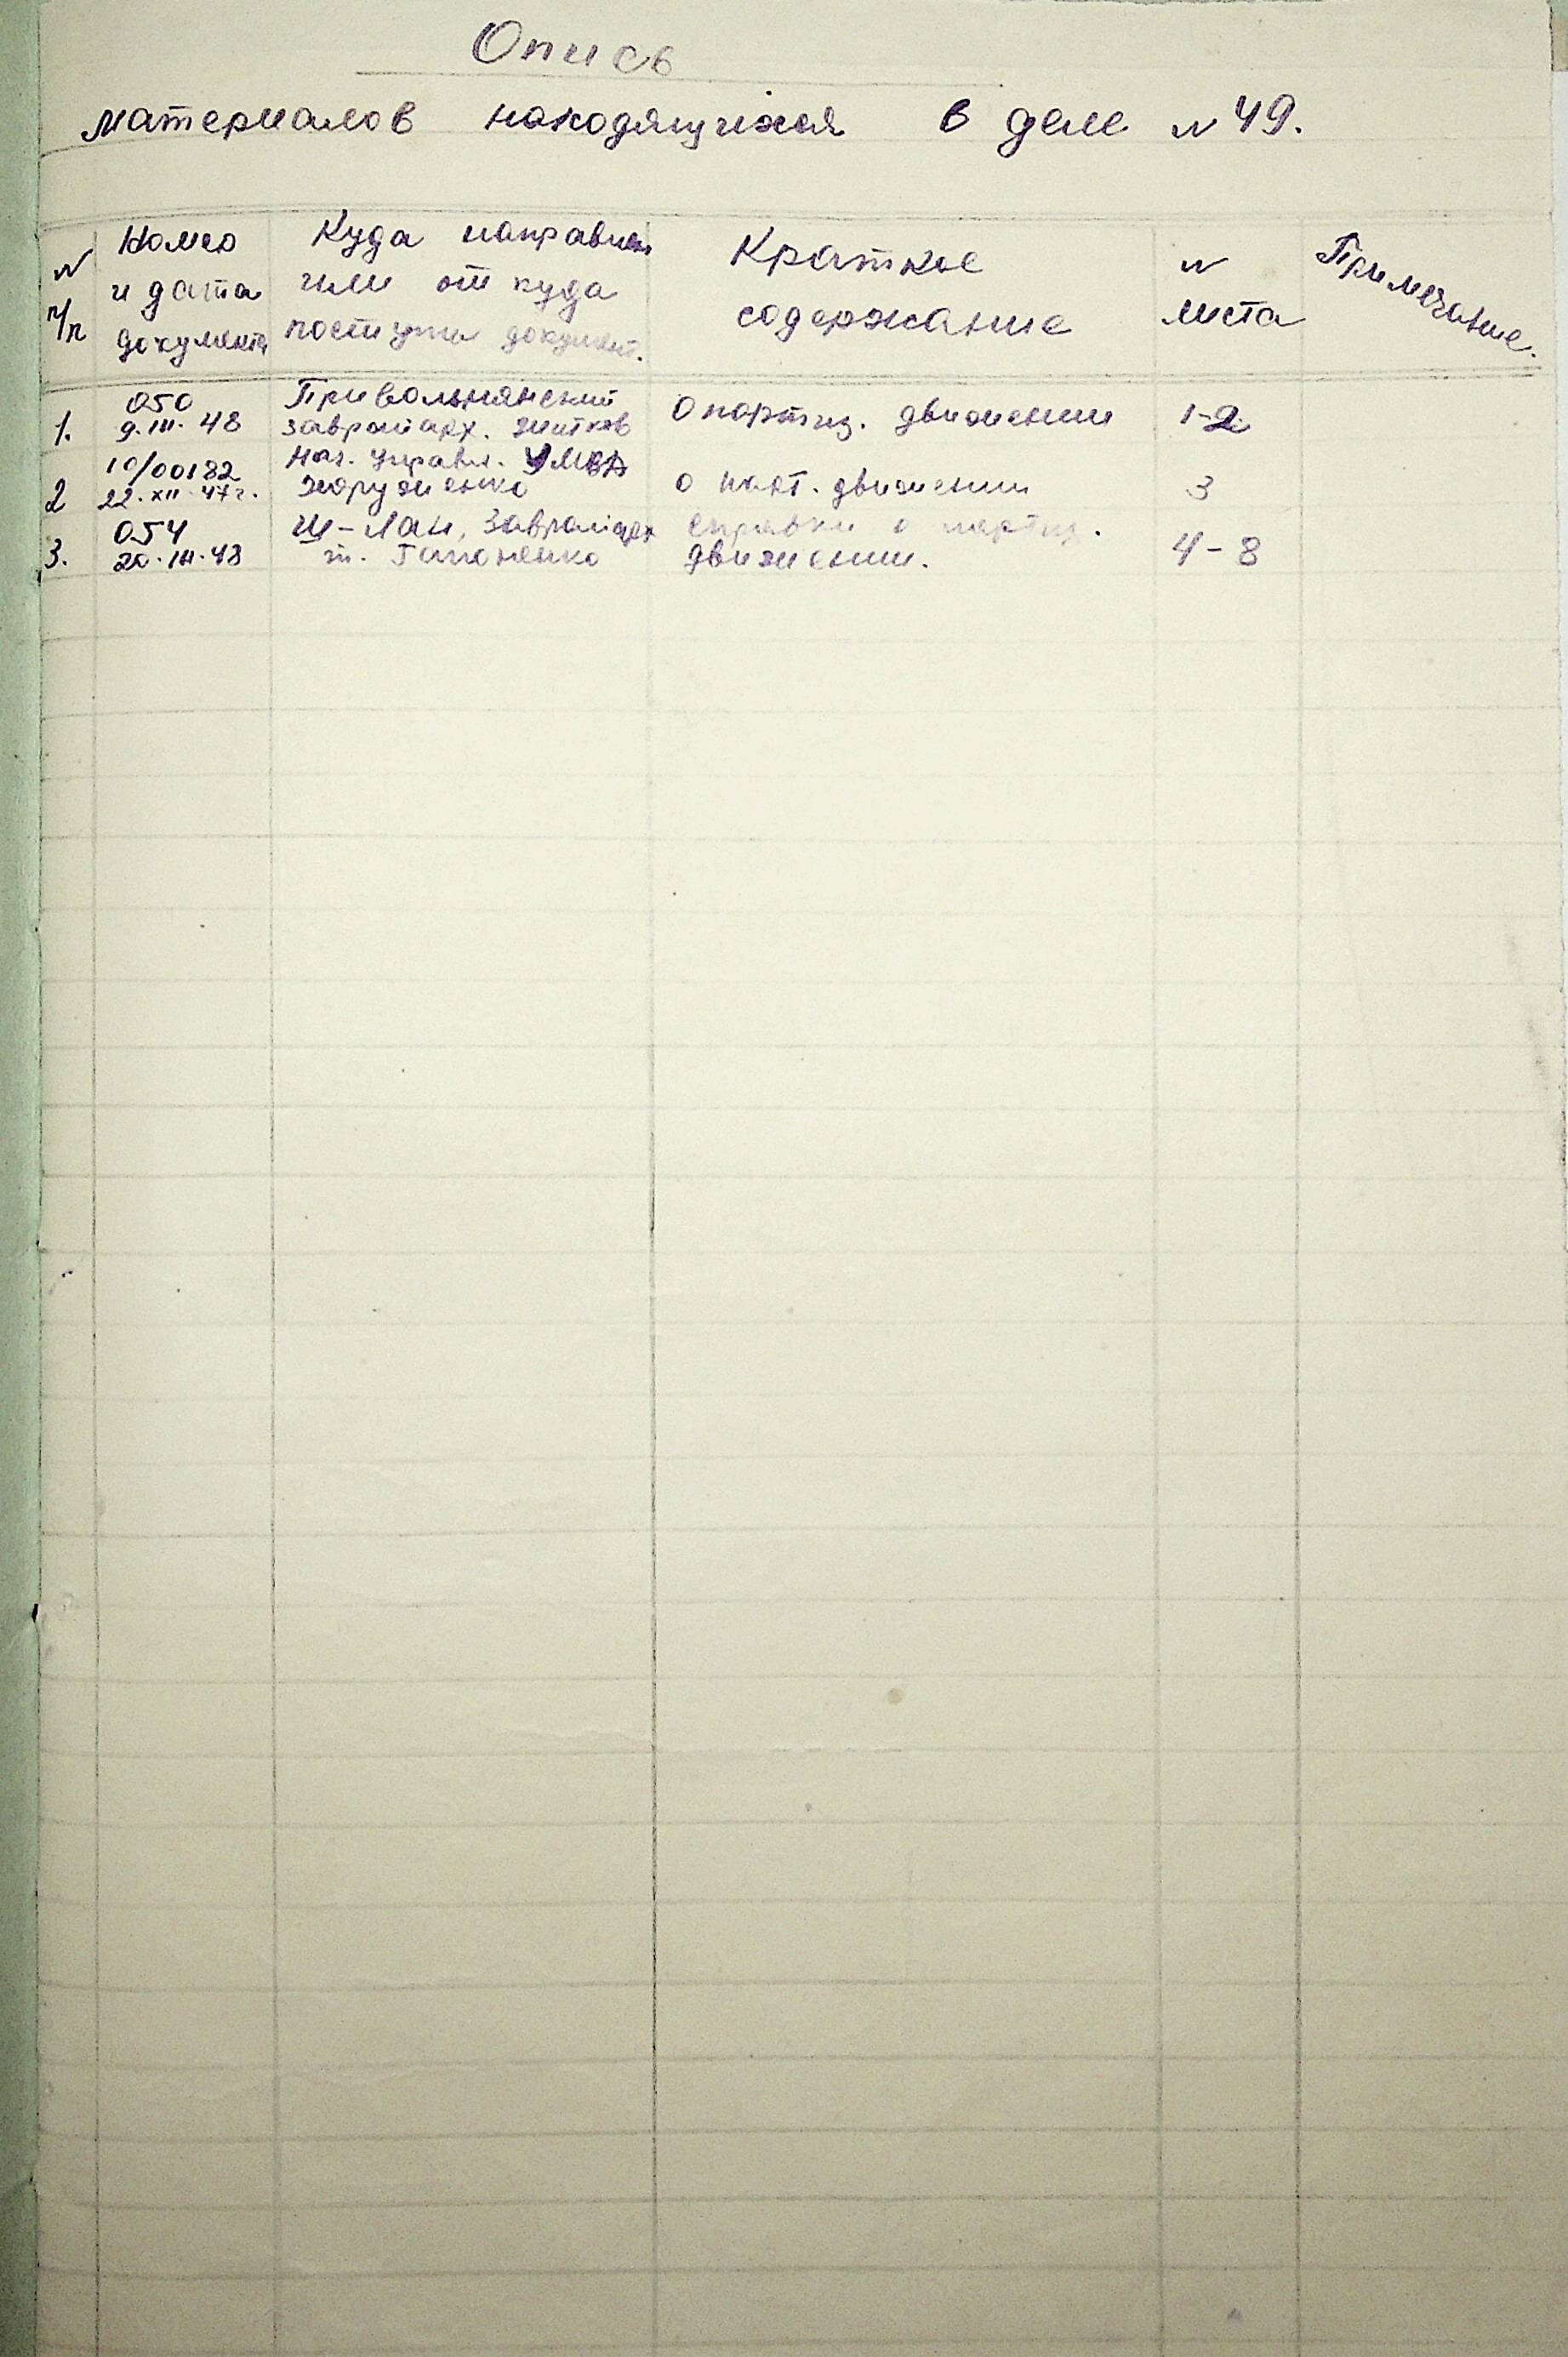 Опись
материалов находящихся в деле № 49.
№ п/п
Номер и дата документа
Куда направлен
или от куда
поступил документ.
Краткое
содержание
№
листа
Примечание.
1.
050
9.III.48
Привольнянский
заврайарх. Житков
О партиз. движении
1-2
2
10/00182
22.XII.47г.
Нач. управл. УМВД
о парт. движении
3
3.
054
20.III.48
Ш-Лан, Заврайарх
т. Гапоненко
справки о партиз.
движении.
4-8